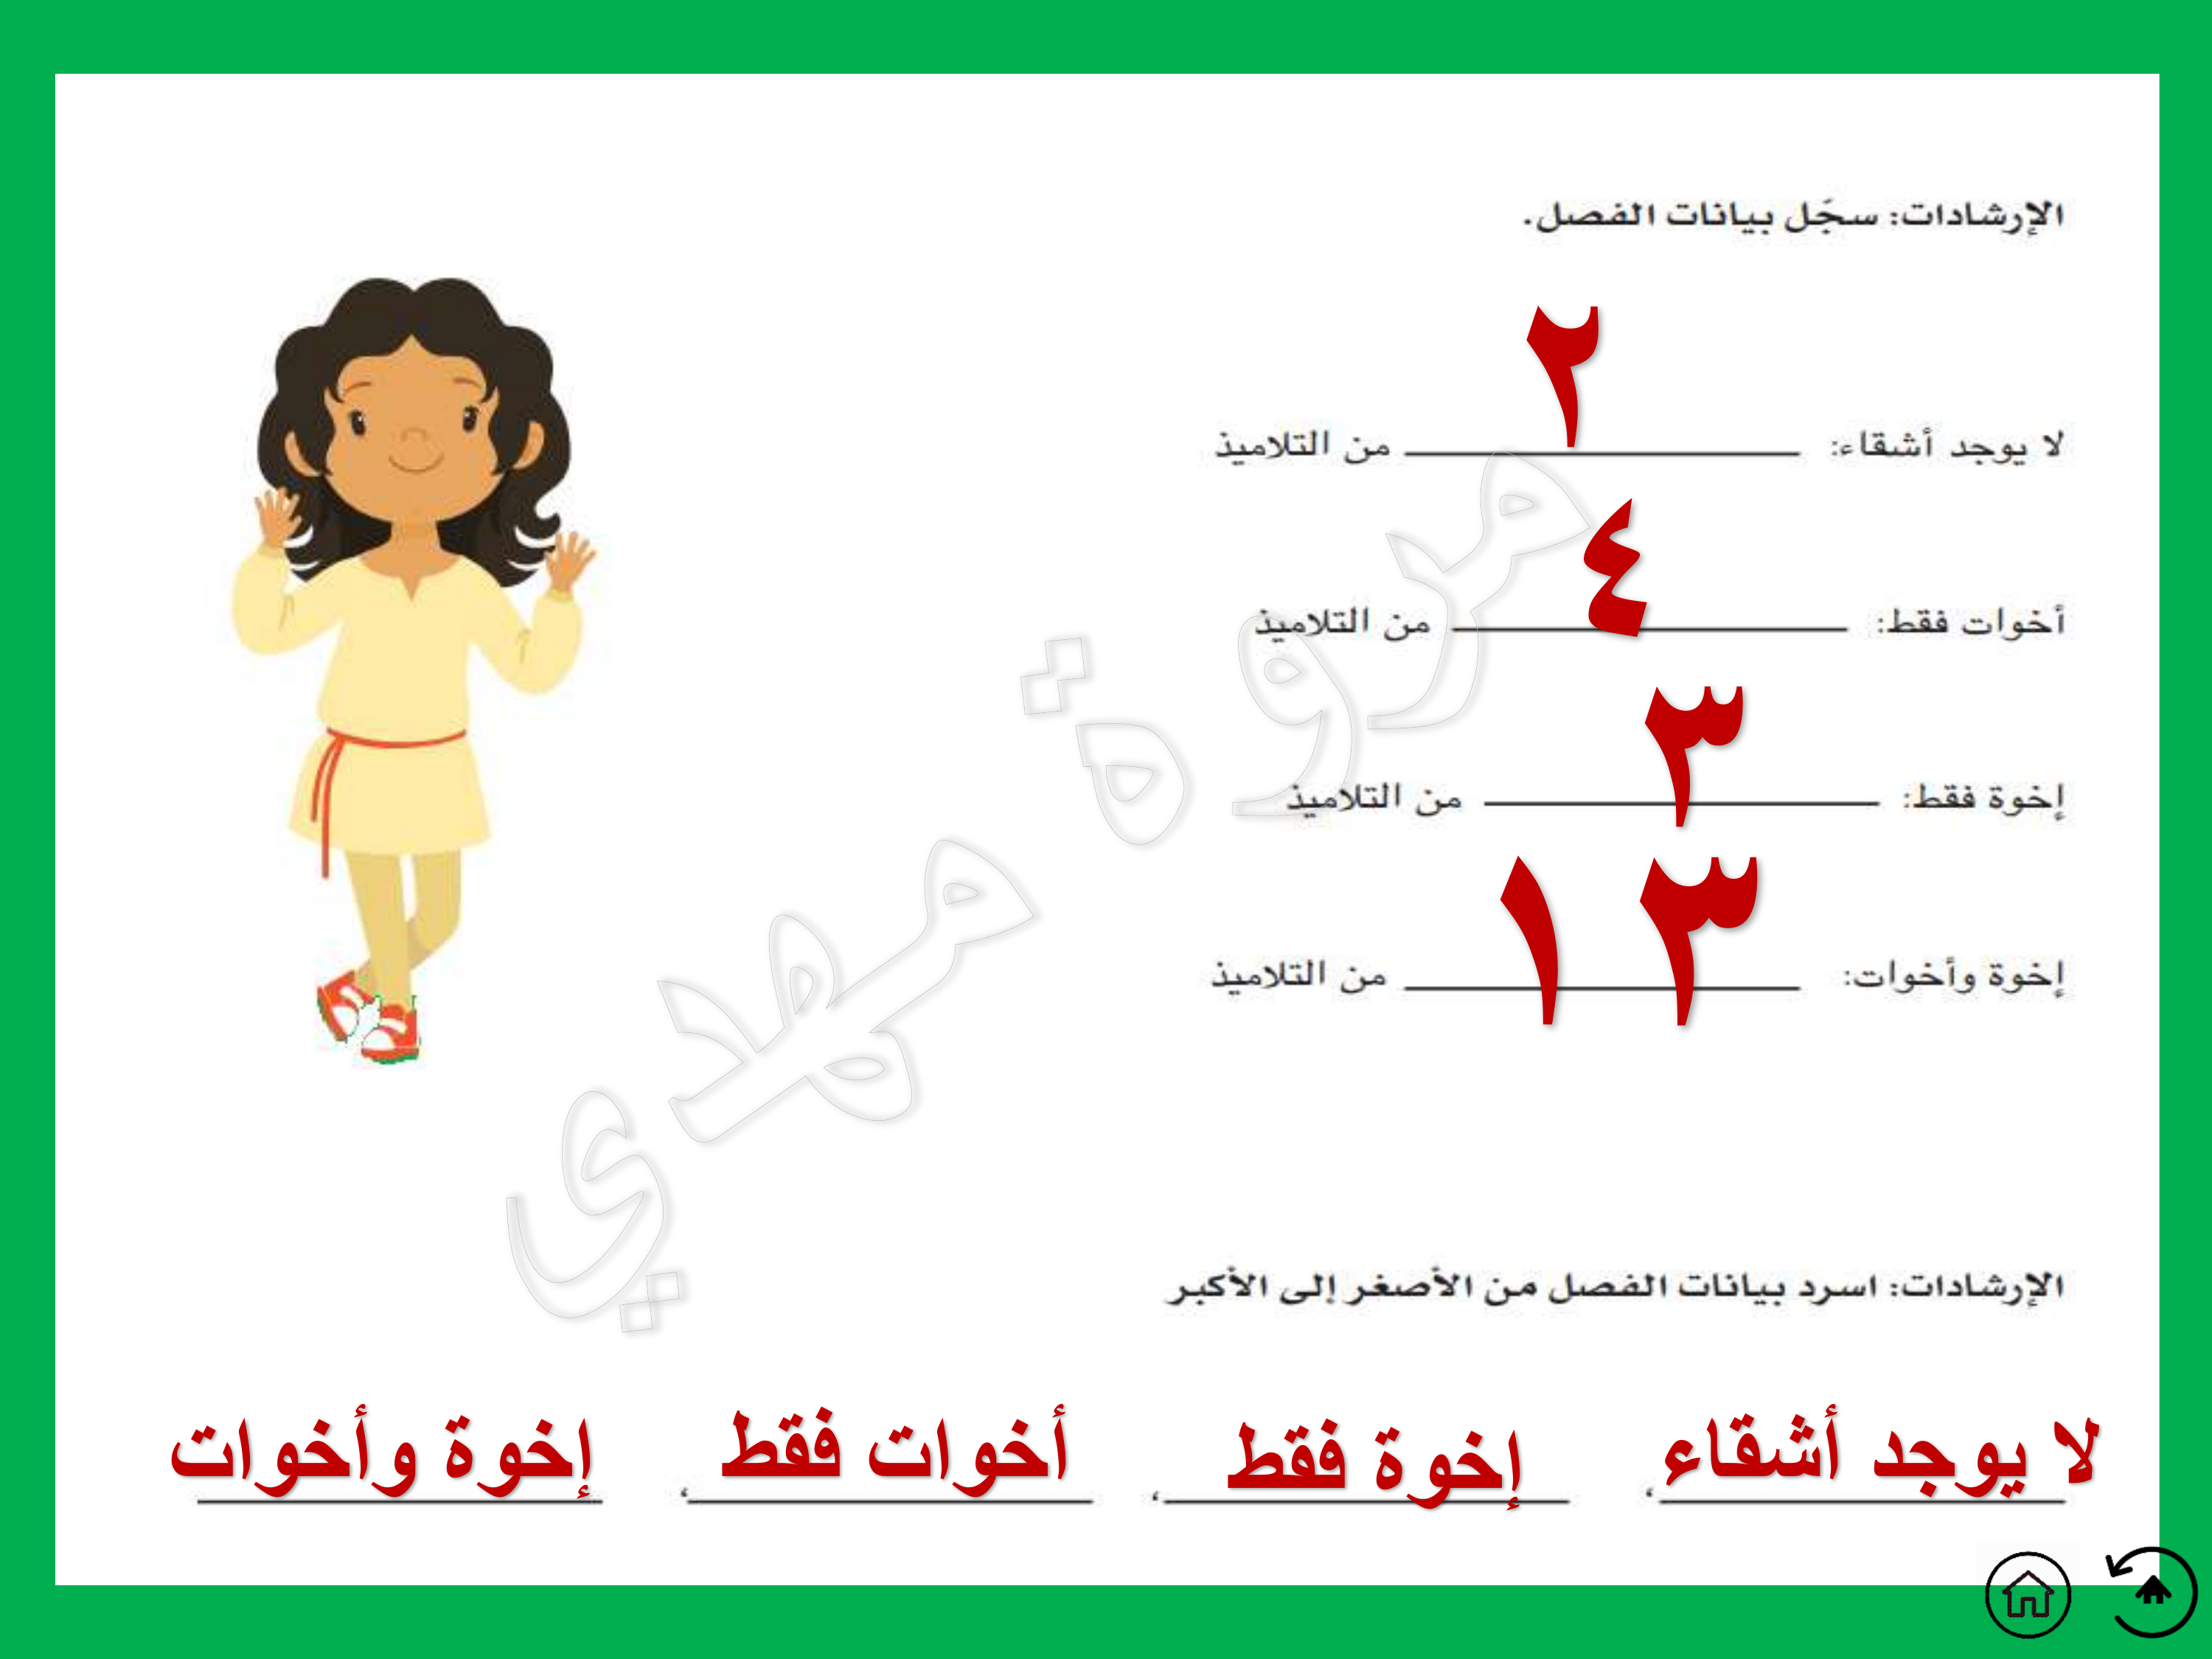 الإرشادات: سجّل بيانات الفصل.
لا يوجد أشقاء: ٢ من التلاميذ
أخوات فقط: ٤ من التلاميذ
إخوة فقط: ٣ من التلاميذ
إخوة وأخوات: ١٣ من التلاميذ
مروة مهدي
الإرشادات: اسرد بيانات الفصل من الأصغر إلى الأكبر
لا يوجد أشقاء، إخوة فقط، أخوات فقط، إخوة وأخوات